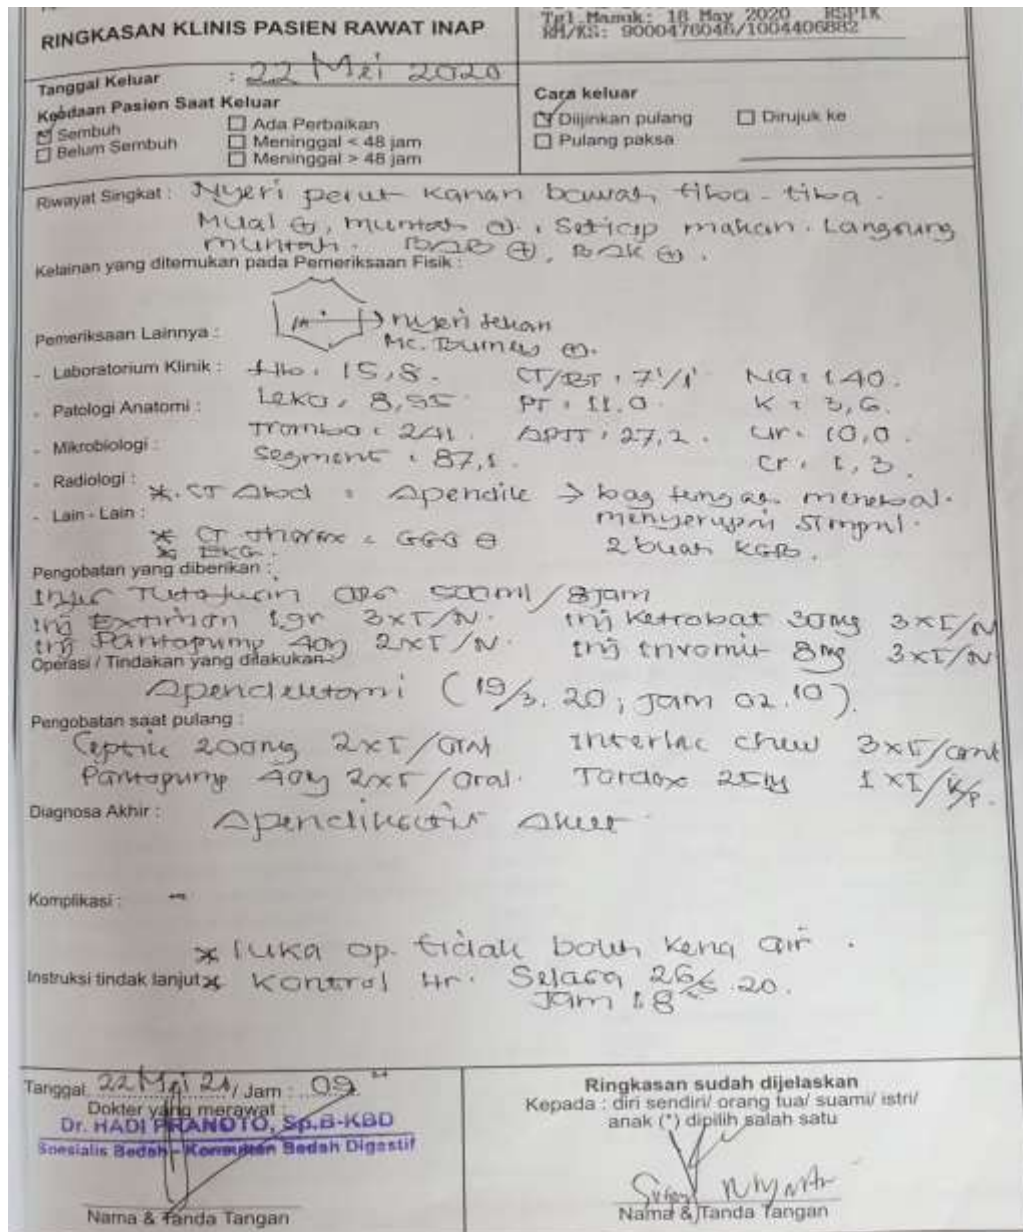 RINGKASAN KLINIS PASIEN RAWAT INAP
Tgl Masuk: 18 May 2020 RSPIK
RM/KS: 9000476046/1004406882
Tanggal Keluar : 22 Mei 2020
Keadaan Pasien Saat Keluar
Sembuh
Belum Sembuh
Ada Perbaikan
Meninggal < 48 jam
Meninggal > 48 jam
Cara keluar
Diijinkan pulang
Dirujuk ke
Pulang paksa
Riwayat Singkat : Nyeri perut kanan bawah tiba-tiba.
Mual ⊕, muntah ⊕. Setiap makan Langsung
muntah. BAB ⊕, BAK ⊕.
Kelainan yang ditemukan pada Pemeriksaan Fisik :
nyeri tekan
Pemeriksaan Lainnya : Mc. Burney ⊕.
- Laboratorium Klinik : Hb : 15,8. CT/BT : 7'/1' Na : 140.
- Patologi Anatomi : Leko : 8,55 PT : 11,0 K : 3,6.
- Mikrobiologi : Trombo : 241. APTT : 27,2. Ur : 10,0.
Segment : 87,1. Cr : 1,3
- Radiologi : *. CT Abd : Apendik → bag tengah menebal.
- Lain - Lain : menyerupai simpul.
* CT thorax = GGO ⊖ 2 buah KGB.
* EKG.
Pengobatan yang diberikan :
Tutofusin ops 500ml/8jam
inj 1gr 3xI/N. inj Ketrobat 30mg 3xI/N
inj Pantopump 40 2xI/N. inj Invomit 8mg 3xI/N
Operasi / Tindakan yang dilakukan :
Apendektomi (19/5.20, jam 02.10).
Pengobatan saat pulang :
Ceptik 200mg 2xI/oral Interlac chew 3xI/oral
Pantopump 40 2xI/oral. 1xI/k/p.
Diagnosa Akhir : Apendiksitis Akut
Komplikasi : -
* luka op. tidak boleh kena air.
Instruksi tindak lanjut * Kontrol Hr. Selasa 26/5.20.
Jam 18
Tanggal 22 Mei 20, Jam : 09.
Dokter yang merawat
Dr. HADI PRANOTO, Sp.B-KBD
Spesialis Bedah - Konsultan Bedah Digestif
Nama & Tanda Tangan
Ringkasan sudah dijelaskan
Kepada : diri sendiri/ orang tua/ suami/ istri/
anak (*) dipilih salah satu
Nama & Tanda Tangan